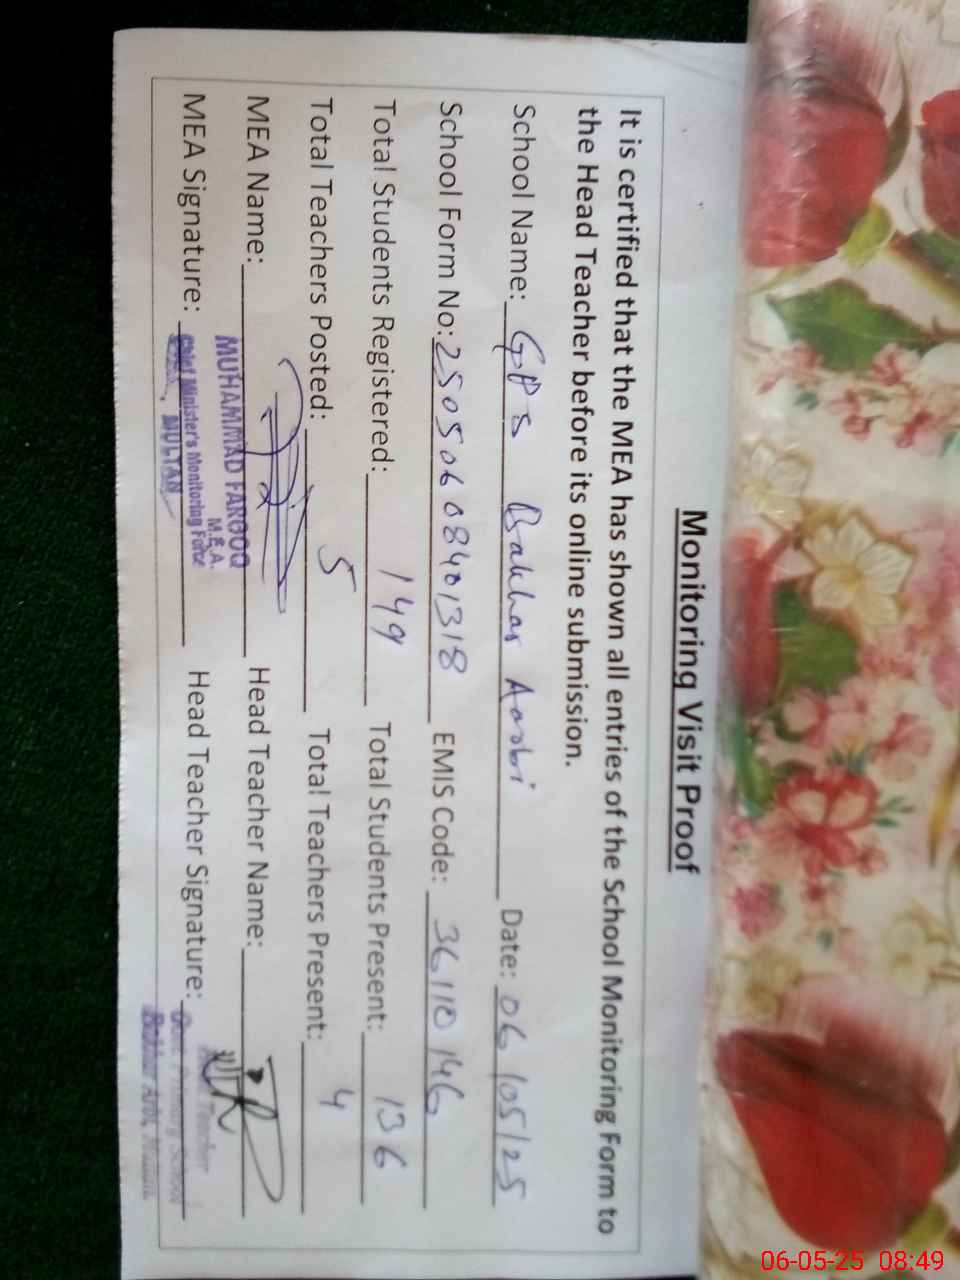 Monitoring Visit Proof
It is certified that the MEA has shown all entries of the School Monitoring Form to
the Head Teacher before its online submission.
School Name: GPS Bakhar Aarbi Date: 06/05/25
School Form No: 25050608401318 EMIS Code: 36110146
Total Students Registered: 149 Total Students Present: 136
Total Teachers Posted: 5 Total Teachers Present: 4
MEA Name: Head Teacher Name:
MUHAMMAD FAROOQ
M.E.A.
MEA Signature: Head Teacher Signature:
Chief Minister's Monitoring Force
MULTAN
Head Teacher
Govt. Primary School
Bakhar Arbi, Multan
06-05-25 08:49